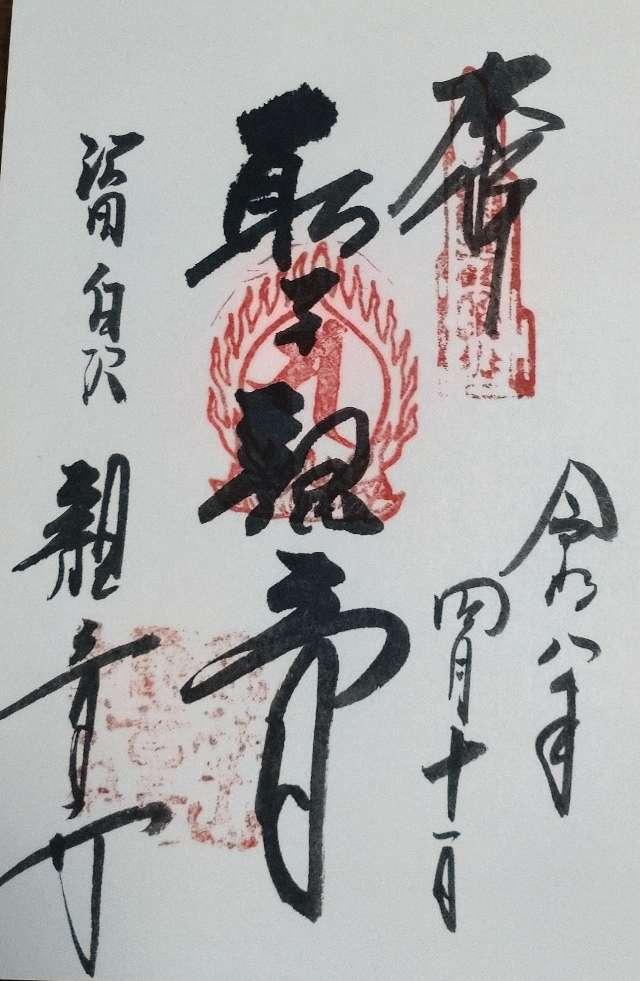 奉拝
令和八年
四月十一日
聖観音
沼田白沢
観音寺